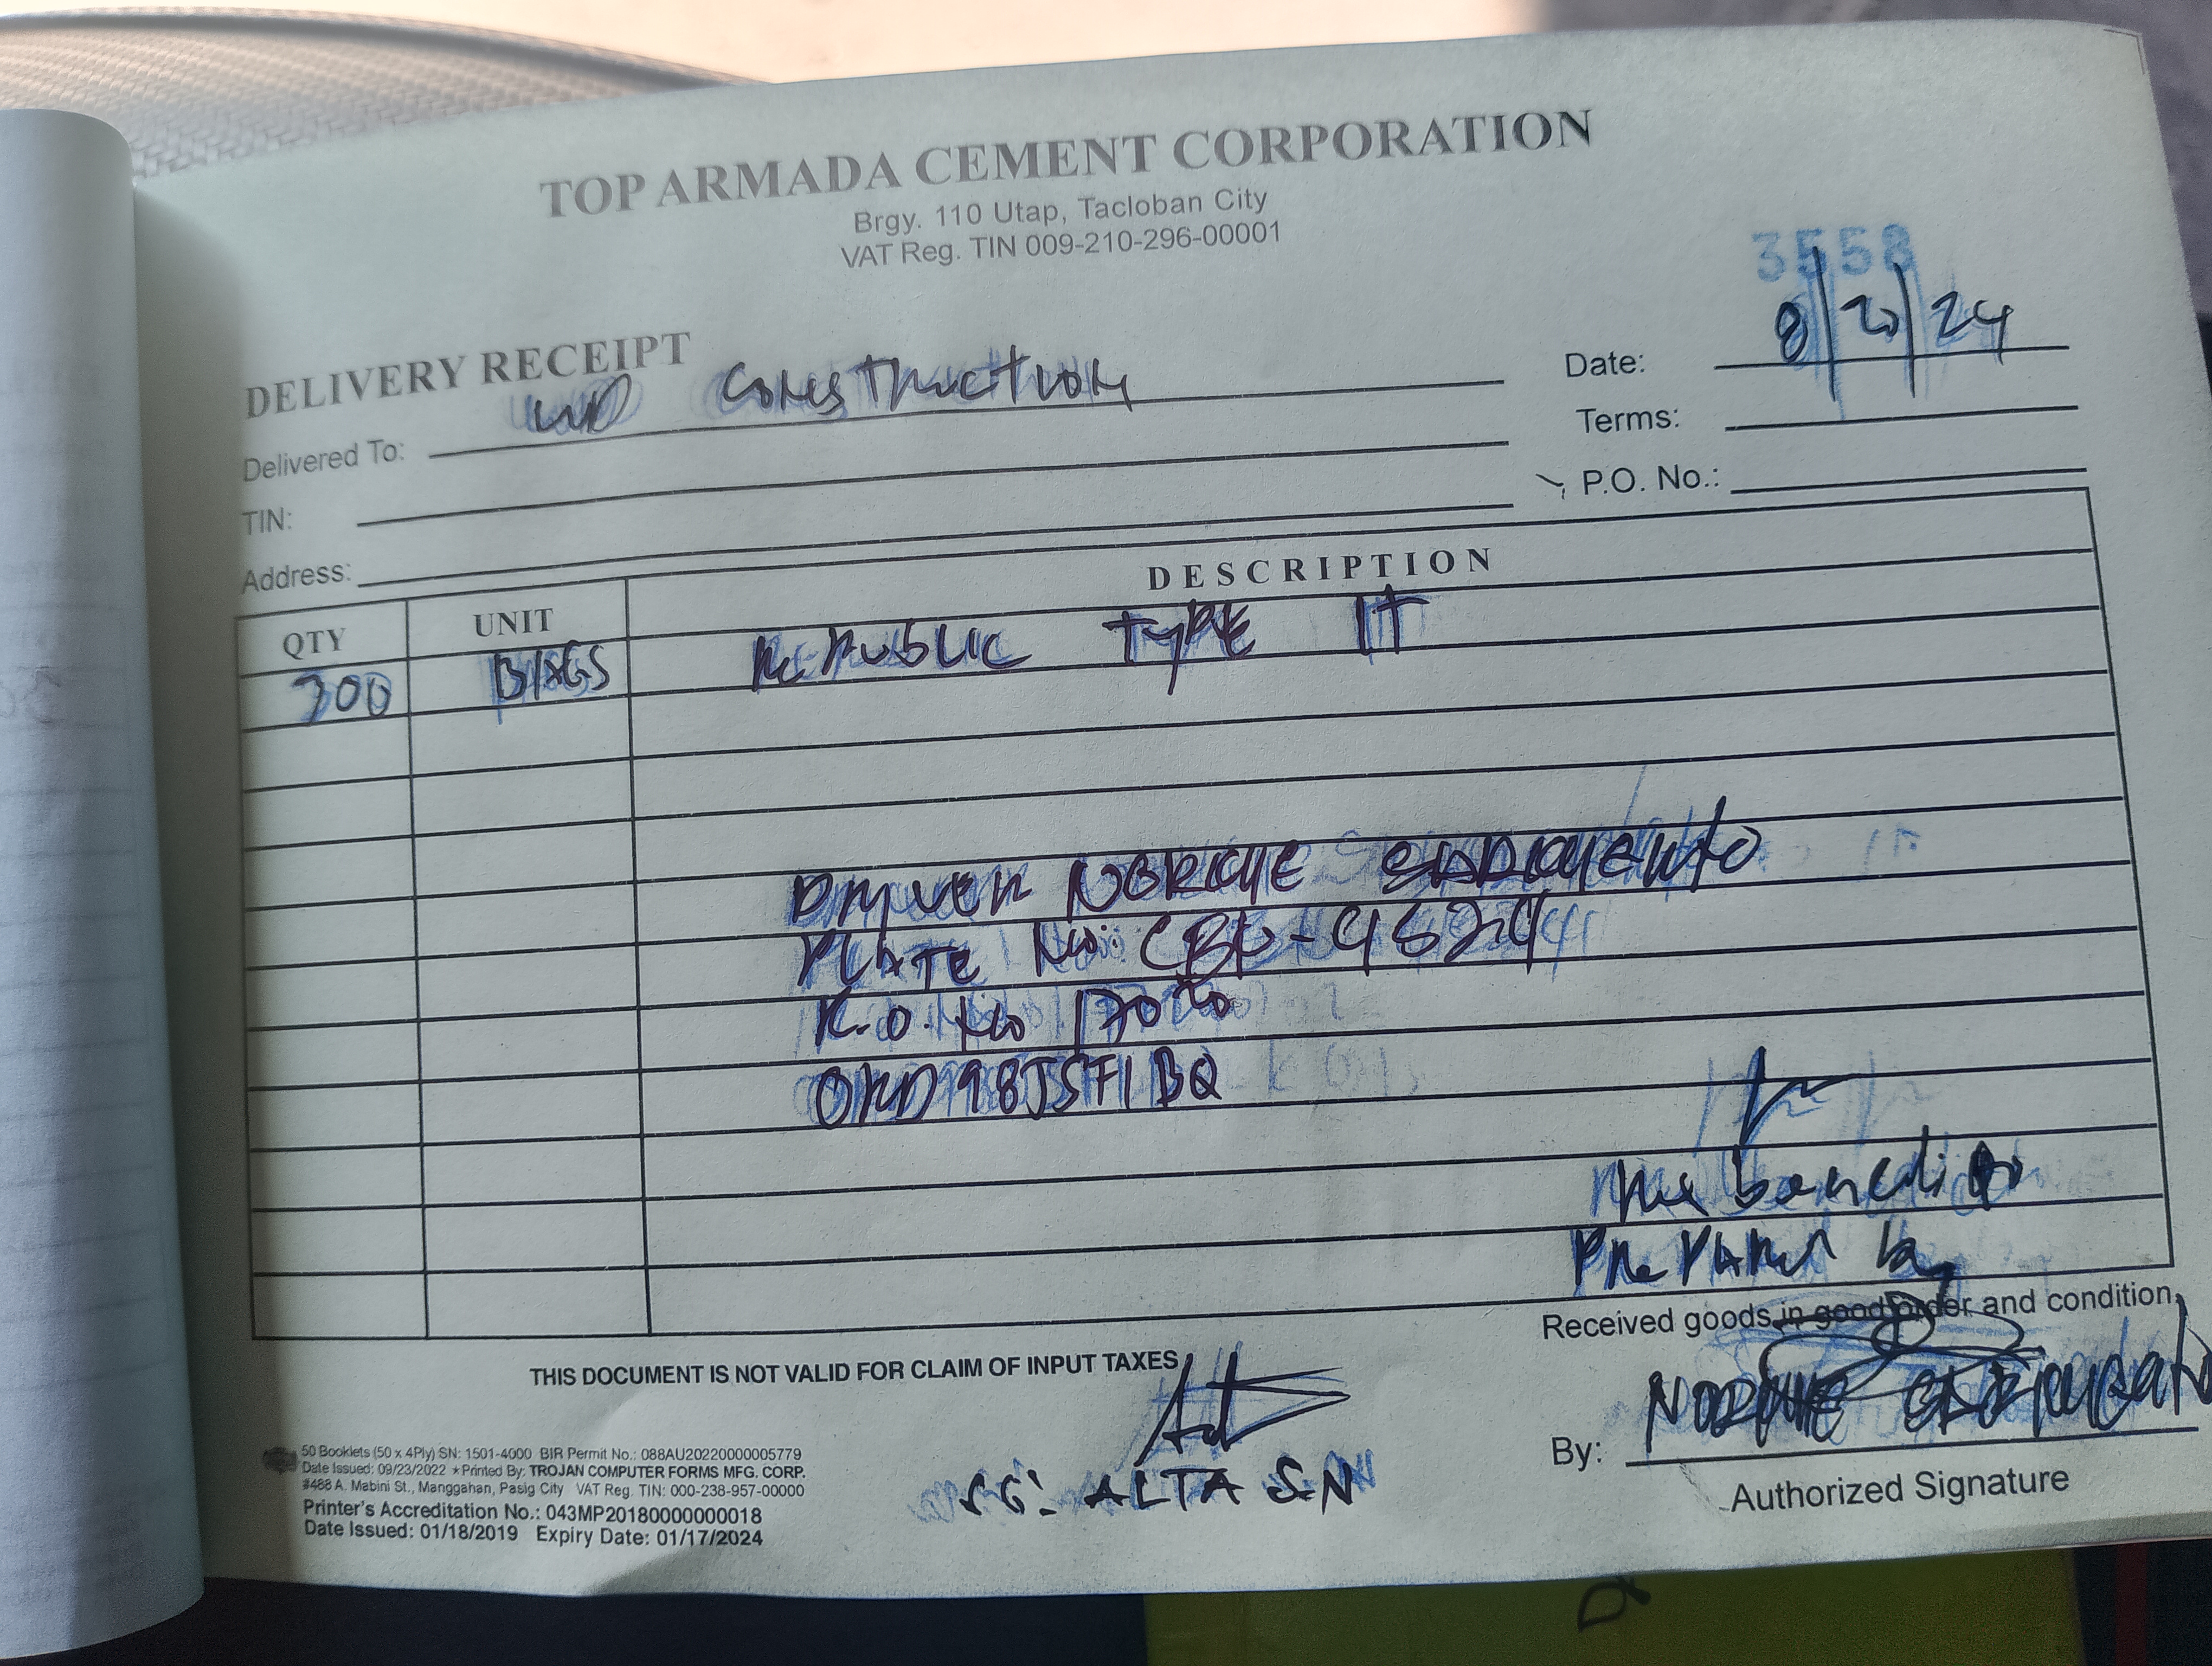 TOP ARMADA CEMENT CORPORATION
Brgy. 110 Utap, Tacloban City
VAT Reg. TIN 009-210-296-00001
3558
DELIVERY RECEIPT
Delivered To: Construction
Date: 8/20/24
TIN:
Terms:
Address:
P.O. No.:
QTY UNIT DESCRIPTION
300 BAGS Republic TYPE 1T
Driver NORKYE SARMIENTO
PLATE No: CBK-9524
No 17020
ORD98JSF1BQ
benedicto
Prepared by
Received goods in good order and condition.
THIS DOCUMENT IS NOT VALID FOR CLAIM OF INPUT TAXES
SG: ALTA S.N
By: SARMIENTO
Authorized Signature
50 Booklets (50 x 4Ply) SN: 1501-4000 BIR Permit No.: 088AU20220000005779
Date Issued: 09/23/2022 ★Printed By: TROJAN COMPUTER FORMS MFG. CORP.
#488 A. Mabini St., Manggahan, Pasig City VAT Reg. TIN: 000-238-957-00000
Printer's Accreditation No.: 043MP20180000000018
Date Issued: 01/18/2019 Expiry Date: 01/17/2024